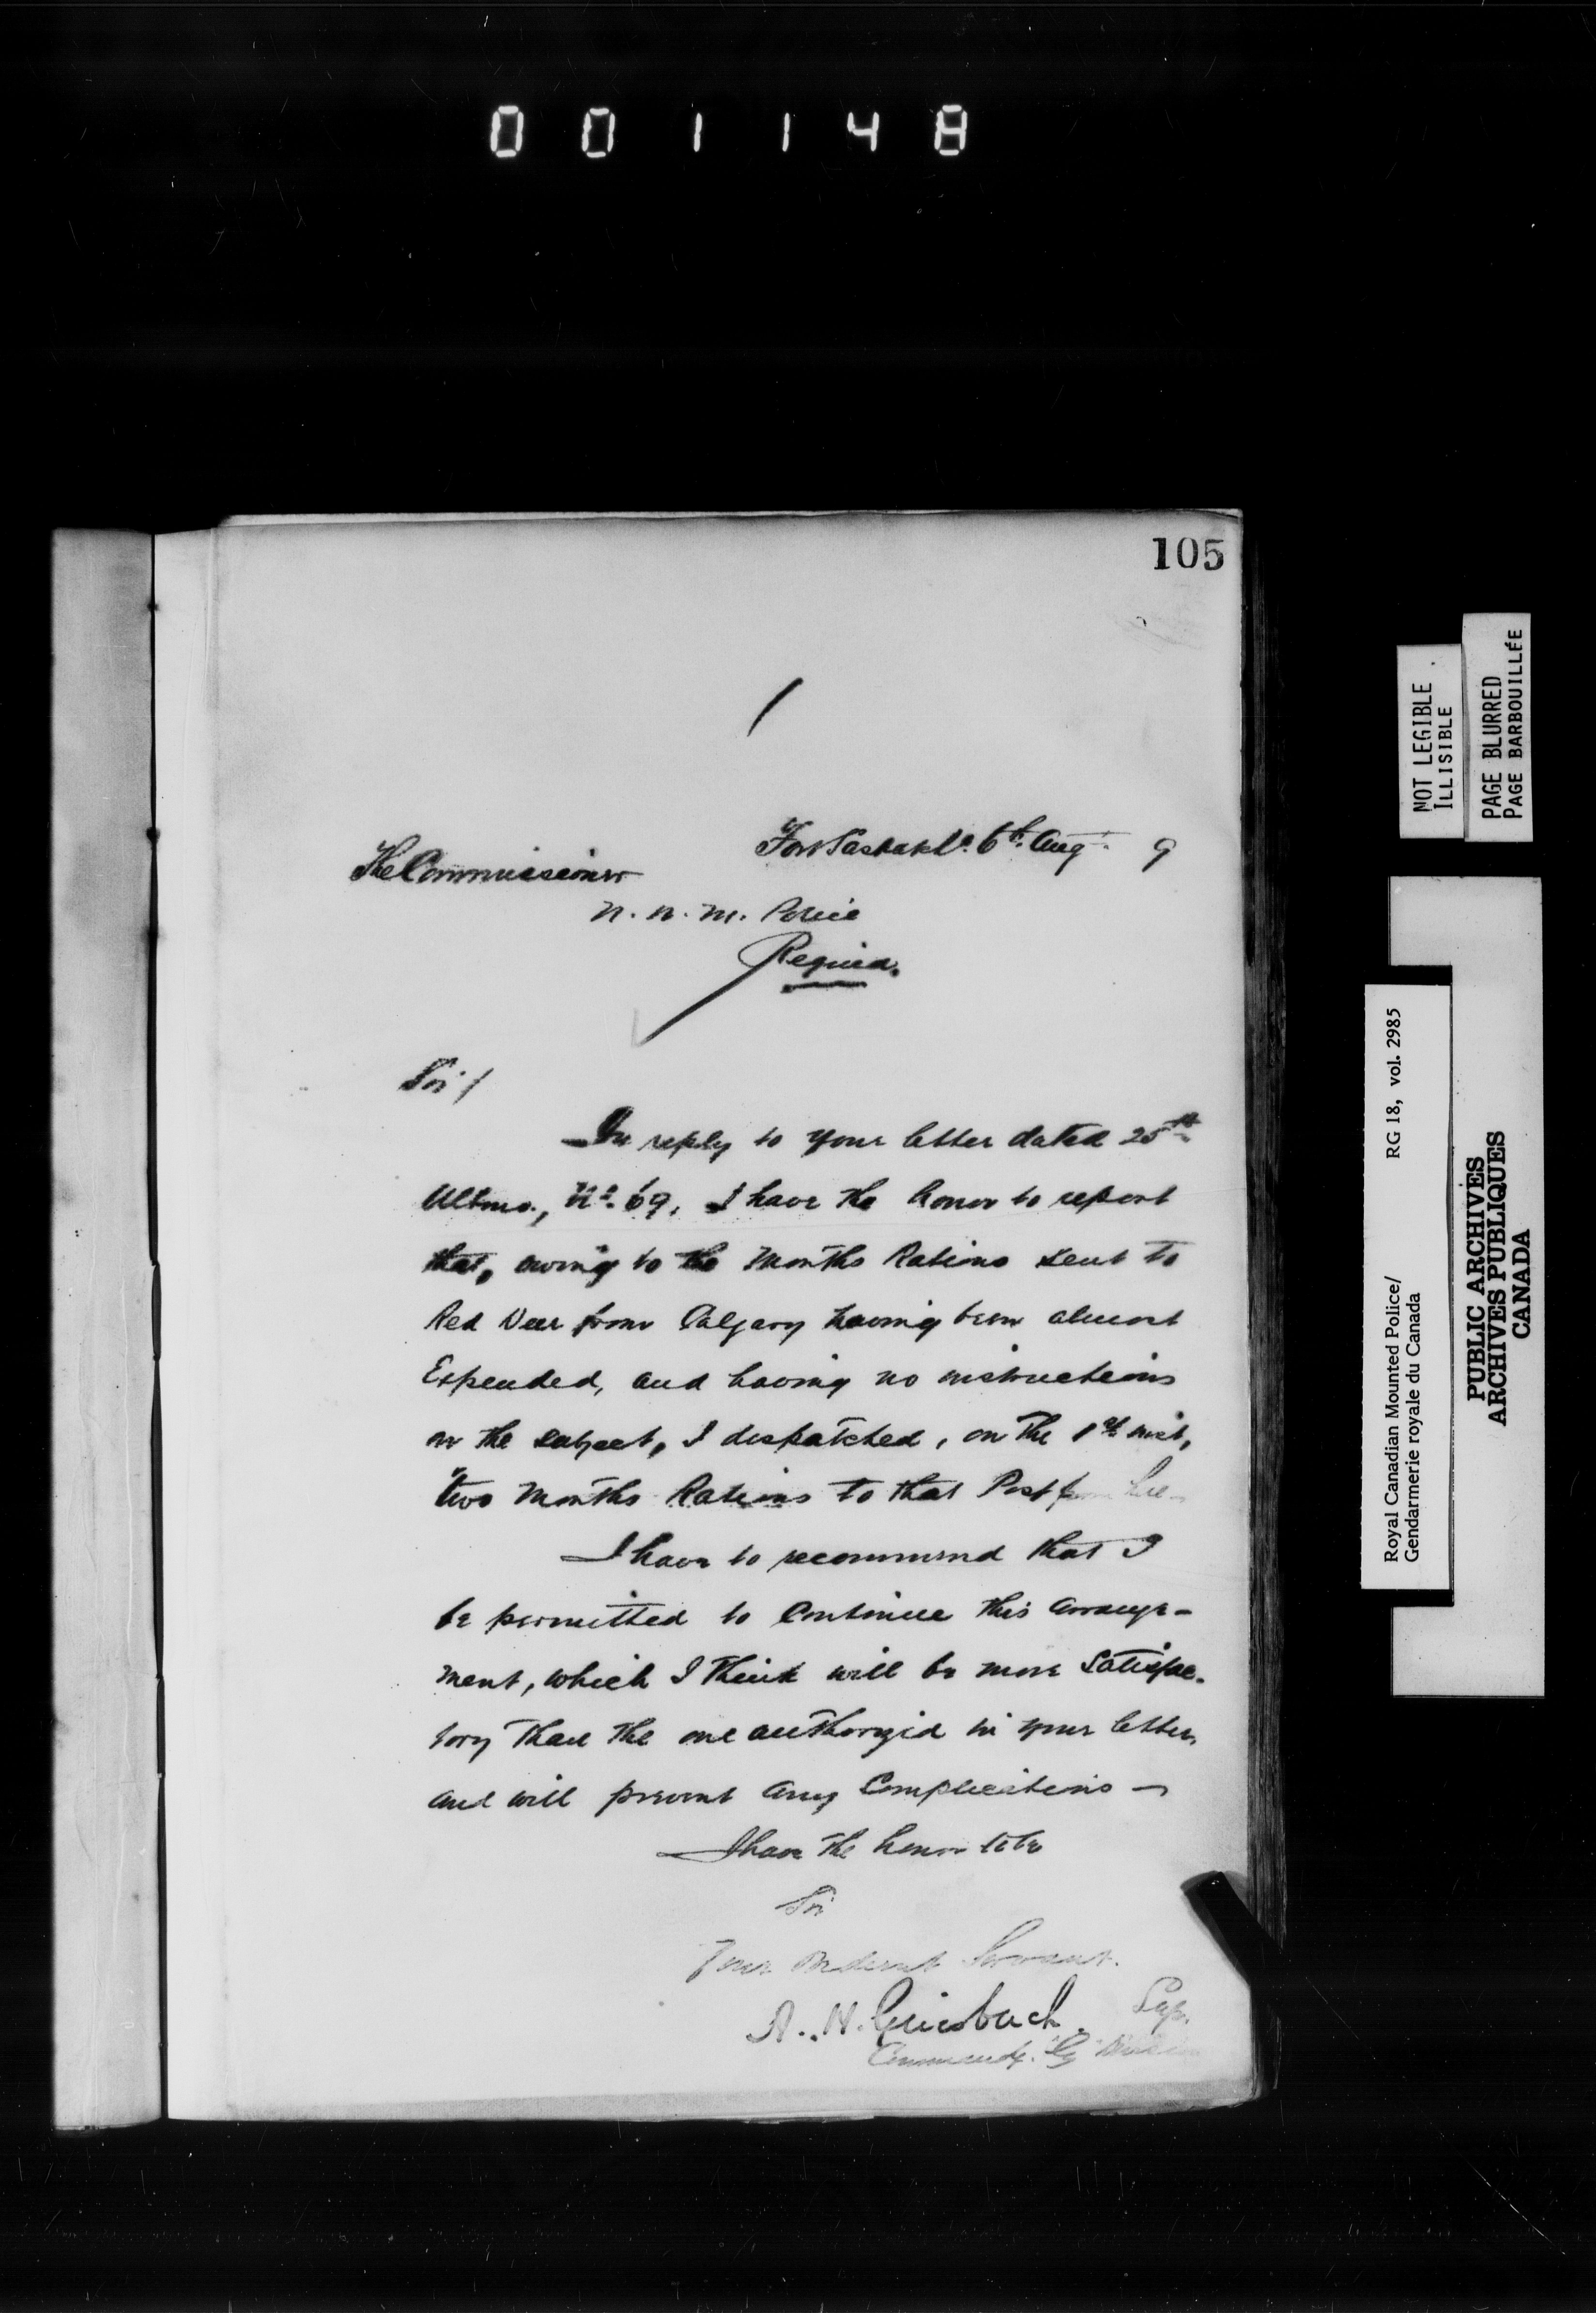 001148
105
Fort Saskatn. 6th Aug. 9
The Commissioner
N. W. M. Police
Regina.
Sir /
In reply to your letter dated 25th
Ultmo., No. 69, I have the honor to report
that, owing to the Months Rations sent to
Red Deer from Calgary having been almost
Expended, and having no instructions
on the subject, I despatched, on the 1st inst,
two Months Rations to that Post from here
I have to recommend that I
be permitted to Continue this arrange-
ment, which I think will be more Satisfac-
tory than the one authorized in your letter,
and will prevent any Complications —
I have the honor to be
Sir
Your Obedient Servant.
A. H. Griesbach. Sup.
Commandg. "G" Division
NOT LEGIBLE
ILLISIBLE
PAGE BLURRED
PAGE BARBOUILLÉE
Royal Canadian Mounted Police/ RG 18, vol. 2985
Gendarmerie royale du Canada
PUBLIC ARCHIVES
ARCHIVES PUBLIQUES
CANADA